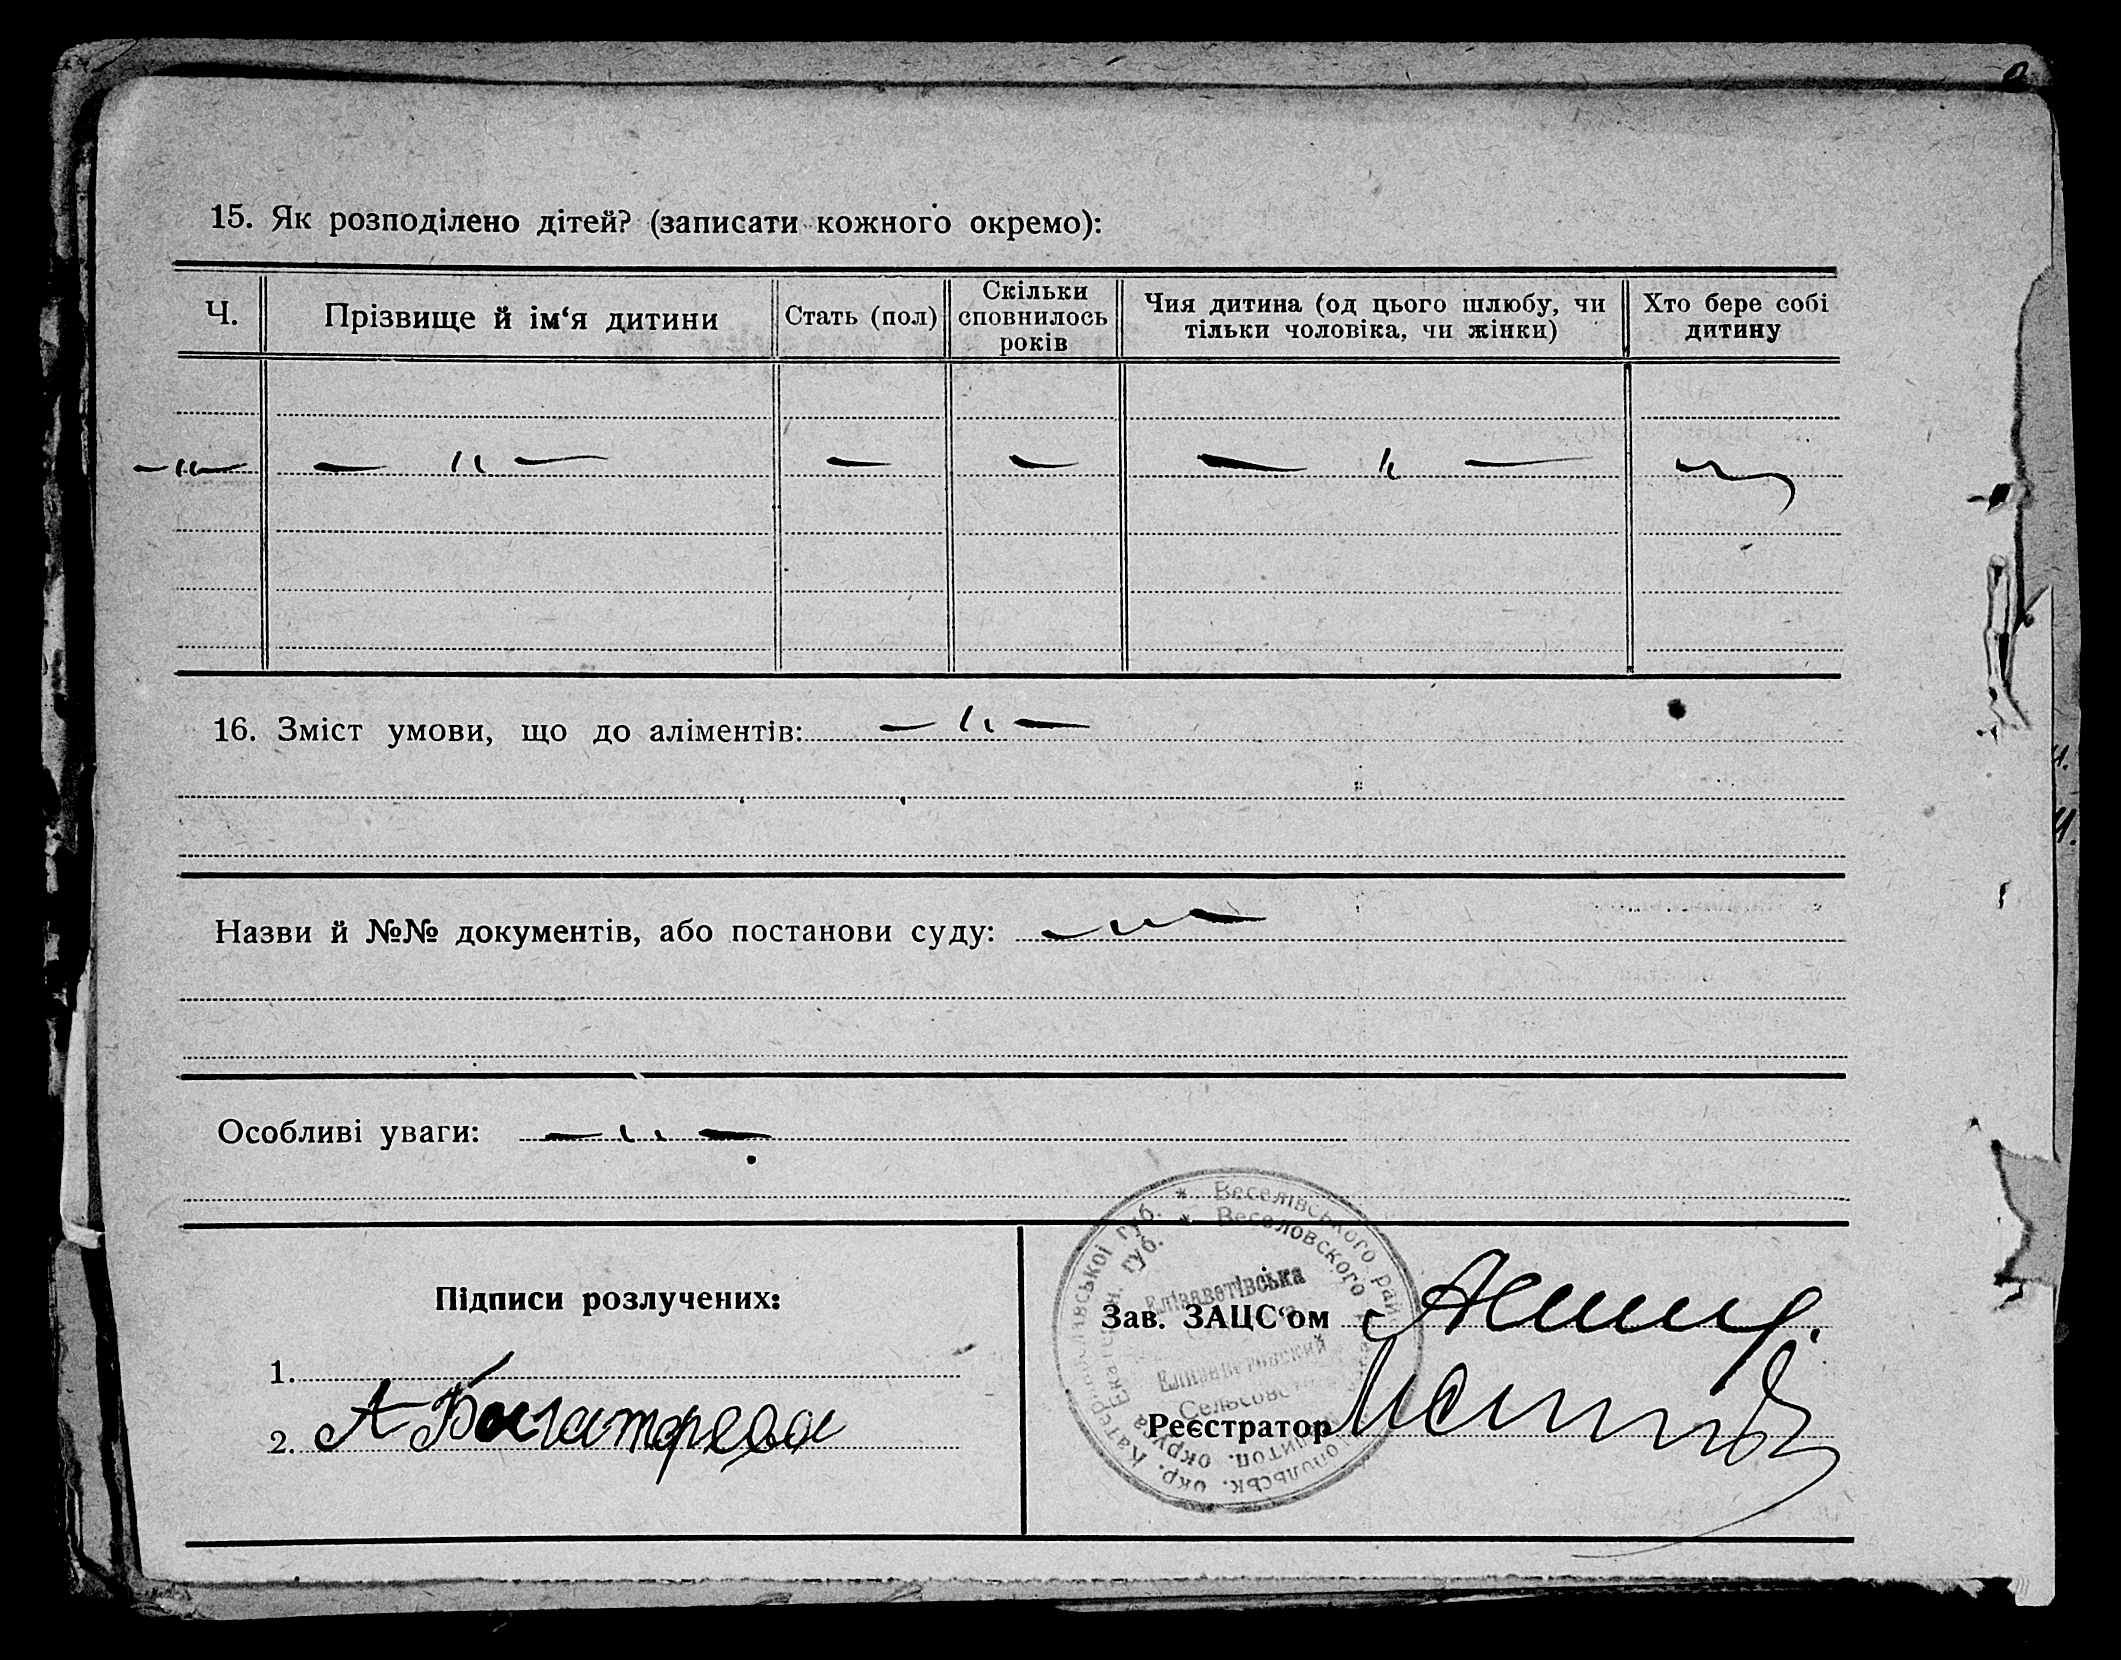 15. Як розподілено дітей? (записати кожного окремо):
Ч.
Прізвище й ім‘я дитини
Стать (пол)
Скільки
сповнилось
років
Чия дитина (од цього шлюбу, чи
тільки чоловіка, чи жінки)
Хто бере собі
дитину
— „ —
— „ —
—
—
— „ —
16. Зміст умови, що до аліментів: — „ —
Назви й №№ документів, або постанови суду: — „ —
Особливі уваги: — „ —
Підписи розлучених:
1.
2. А Богатирева
Зав. ЗАЦС‘ом
Реєстратор
* Веселівського рай
окр. Катеринославської губ.
* Веселовского
округа Екатерин. губ.
Єлізаветівська
Сельсовет